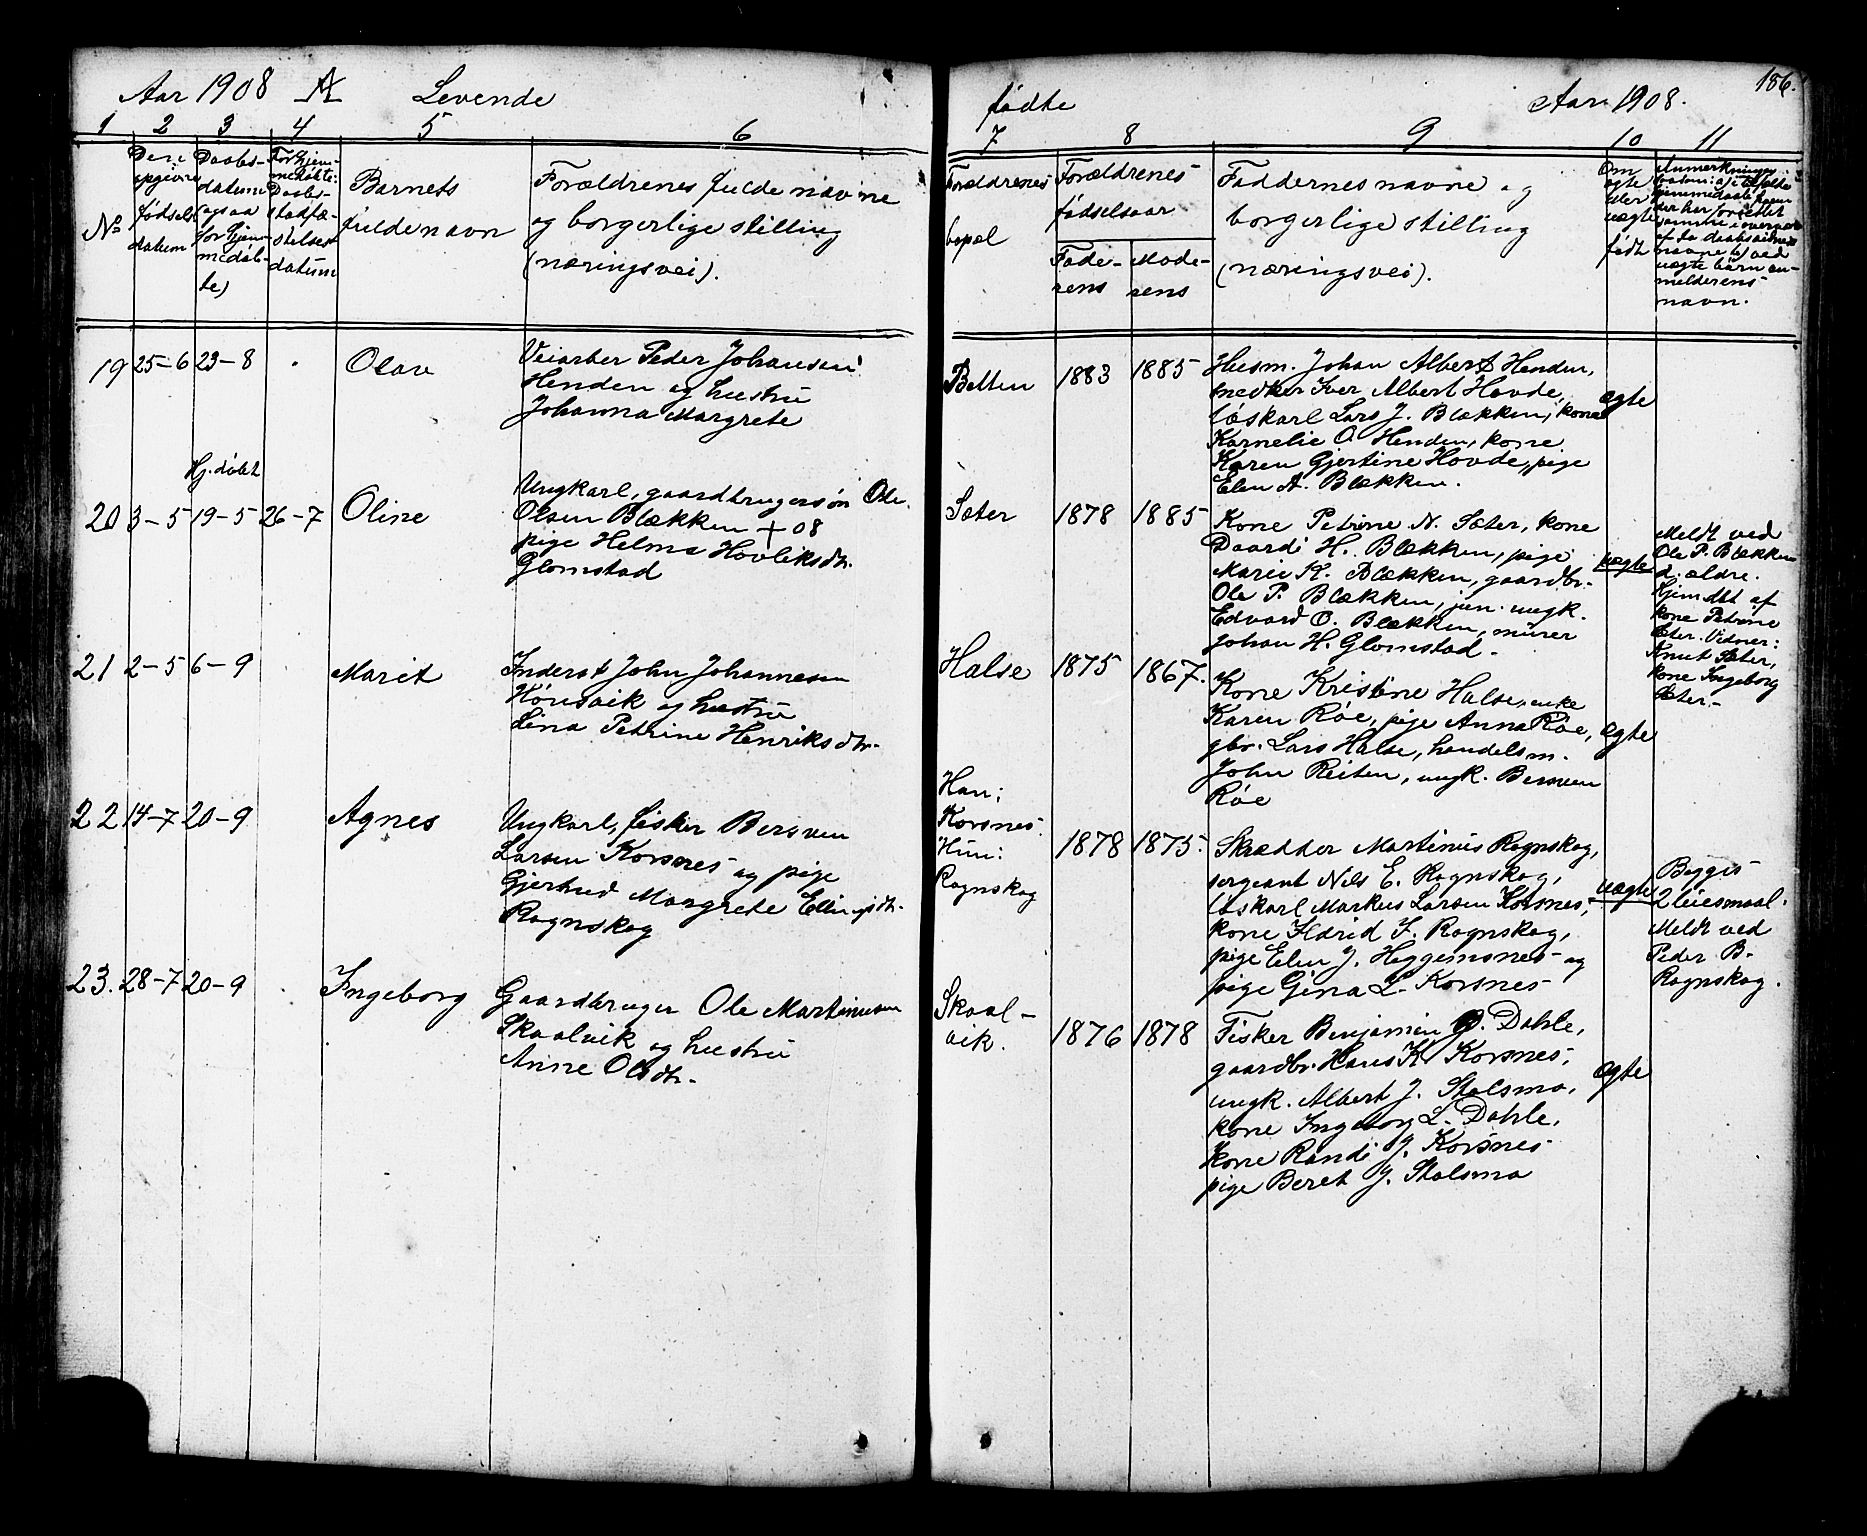 Aar 1908 A Levende
fødte Aar 1908. 186.
1 2 3 4 5 6
7 8 9 10 11
No
Den
opgivne
fødsels
datum
Daabs-
datum
(ogsaa
for hjem-
medøb-
te)
For hjem-
medøbte:
Daabs-
stadfæ-
stelses
datum
Barnets
fulde navn
Forældrenes fulde navne
og borgerlige stilling
(næringsvei).
Forældrenes
bopæl
Forældrenes
fødselsaar
Fade-
rens
Mode-
rens
Faddernes navne og
borgerlige stilling
(næringsvei).
Om
ægte
eller
uægte
født
Anmerkninger
navn.
19 25-6 23-8 Olav
Veiarber Peder Johansen
Henden og hustru
Johanna Margrete
Botten 1883 1885
Husm. Johan Albert Henden,
snedker Iver Albert Hovde,
løskarl Lars J. Blækken, kone
Karnelie O. Henden, kone
Karen Gjertine Hovde, pige
Elen A. Blækken.
ægte
Hj. døbt
20 3-5 19-5 26-7 Oline
Ungkarl, gaardbrugersøn Ole
Olsen Blækken + 08
pige Helma Hovliksdtr.
Glomstad
Sæter 1878 1885
Kone Petrine N. Sæter, kone
Daardi H. Blækken, pige
Marie K. Blækken, gaardbr.
Ole P. Blækken, jun. ungk.
Edvard O. Blækken, murer
Johan H. Glomstad.
uægte
Meldt ved
Ole P. Blækken
d. ældre.
Hjemdbt af
kone Petrine
Sæter. Vidner:
Knut Sæter,
kone Ingeborg
Sæter.
21 2-5 6-9 Marit
Inderst John Johannesen
Hønsvik og hustru
Lina Petrine Henriksdtr.
Halse 1875 1867.
Kone Kristine Halse, enke
Karen Røe, pige Anna Røe,
gbr. Lars Halse, handelsm.
John Reiten, ungk. Bersven
Røe
ægte
22 14-7 20-9 Agnes
Ungkarl, fisker Bersven
Larsen Korsnes og pige
Gjertrud Margrete Ellingsdtr.
Rognskog
Han:
Korsnes.
Hun:
Rognskog
1878 1875.
Skrædder Martinus Rognskog,
sergeant Nils E. Rognskog,
løskarl Markus Larsen Korsnes,
kone Hdrid I. Rognskog,
pige Elen J. Higgemsnes og
pige Gina L. Korsnes
uægte
Begges
2 leiesmaal.
Meldt ved
Peder B.
Rognskog.
23. 28-7 20-9 Ingeborg
Gaardbruger Ole Martinusen
Skaalvik og hustru
Anne Olsdtr.
Skaal-
vik.
1876 1878
Fisker Benjamin B. Dahle,
gaardbr. Hans K. Korsnes,
ungk. Albert J. Stolsmo,
kone Ingeborg L. Dahle,
kone Randi J. Korsnes
pige Beret J. Stolsmo
ægte